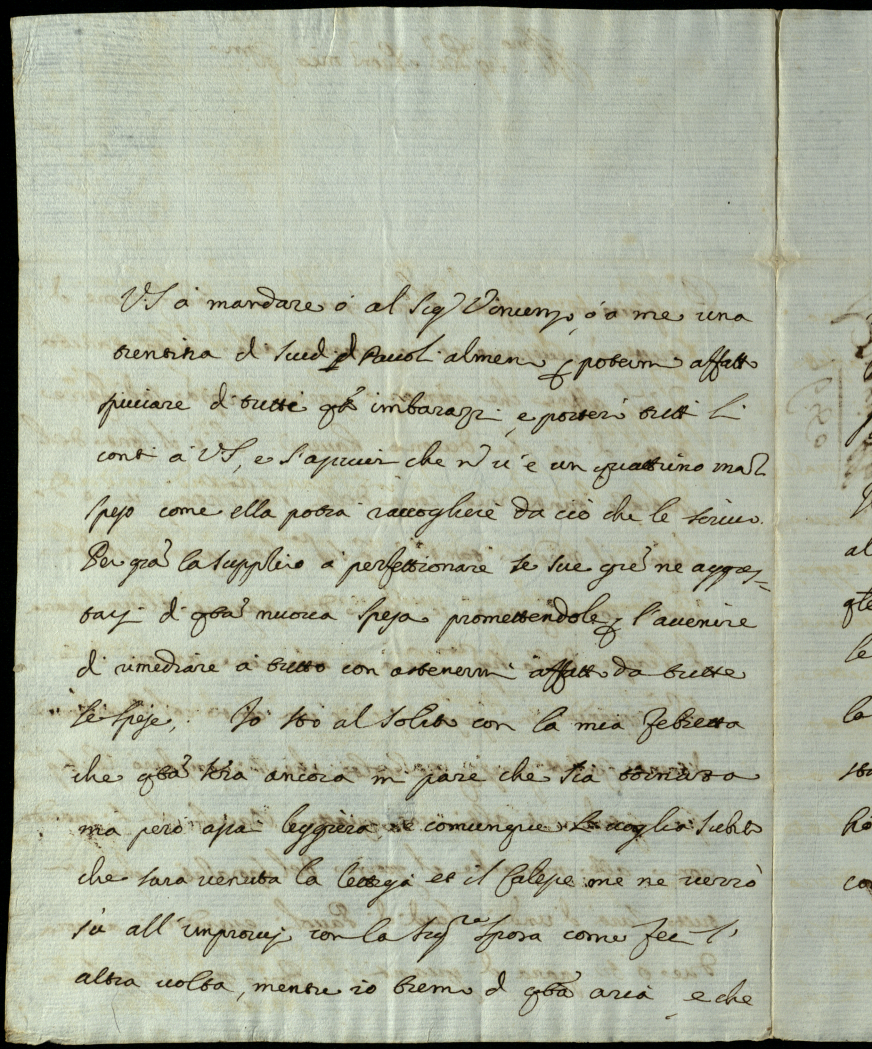 VS à mandare ó al Sigr Vincenzo, ó a me una
trentina di Scudi di Pauoli almeno p potermi affatto
spicciare di tutti qti imbarazzi, e porterò tutti li
conti à VS, e s'assicuri che n ui é un quattrino mal
speso come ella potrà raccogliere da ciò che le scriuo.
Per gra la supplico à perfettionare le sue gre ne aggra=
uasi di qta nuoua spesa promettendole p l'auenire
di rimediare à tutto con astenermi affatto da tutte
le spese, Io stò al solito con la mia febretta
che qta sera ancora mi pare che sia tornata
ma però assai leggiera e comunque uoglia subito
che sara uenuta la lettiga et il Calesse me ne uerrò
sù all'improuiso con la Sigra Spora come feci l'
altra uolta, mentre io tremo di qta aria, e che